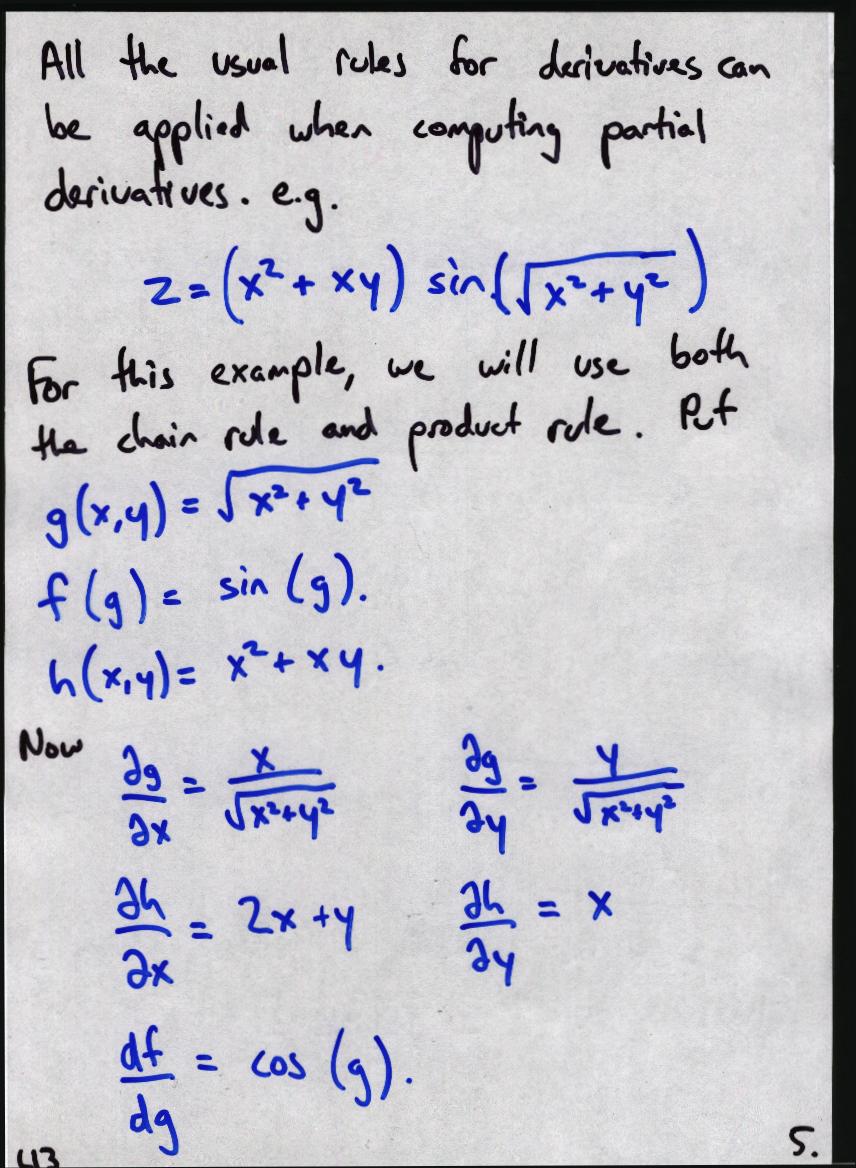 All the usual rules for derivatives can
be applied when computing partial
derivatives. e.g.
z = (x² + xy) sin(√(x² + y²))
For this example, we will use both
the chain rule and product rule. Put
g(x,y) = √(x² + y²)
f(g) = sin(g).
h(x,y) = x² + xy.
Now ∂g/∂x = x/√(x²+y²) ∂g/∂y = y/√(x²+y²)
∂h/∂x = 2x + y ∂h/∂y = x
df/dg = cos(g).
43 5.